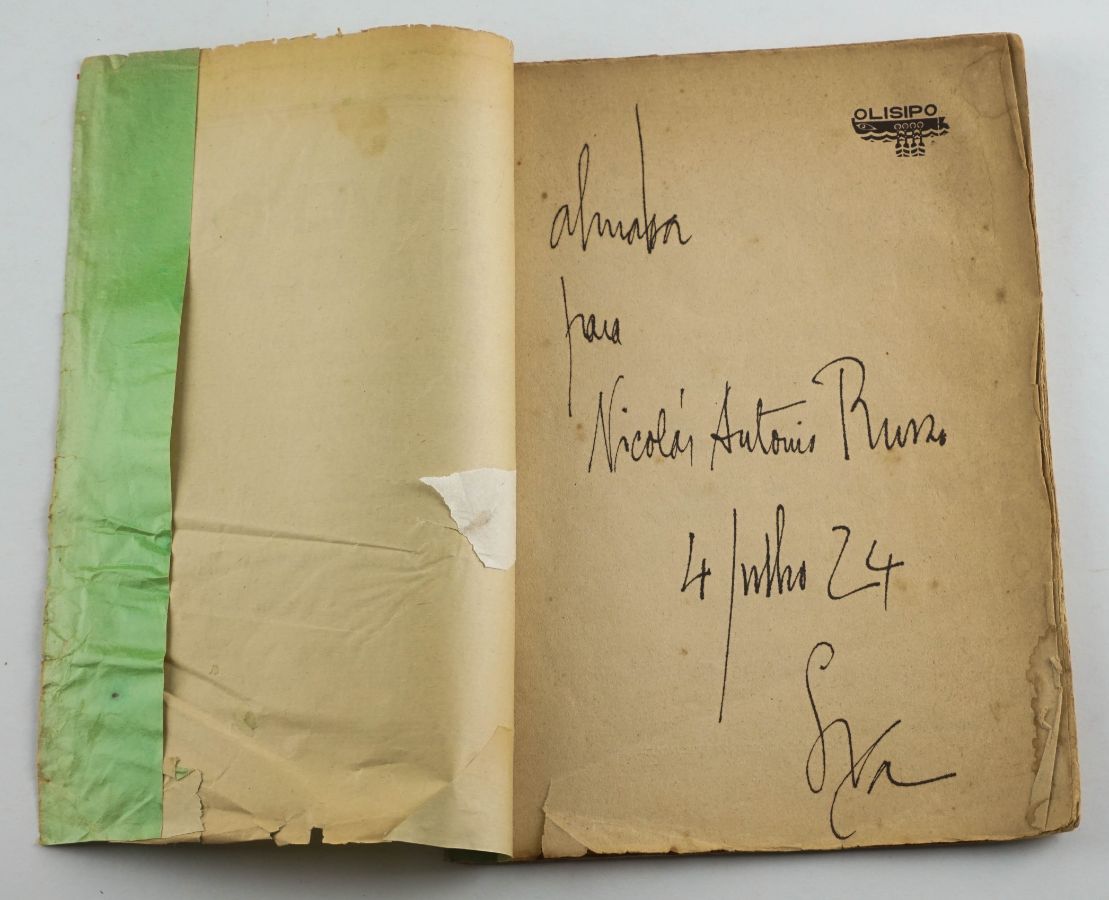 OLISIPO
almada
para
Nicolás Antonio Russo
4 Julho 24
Lxa